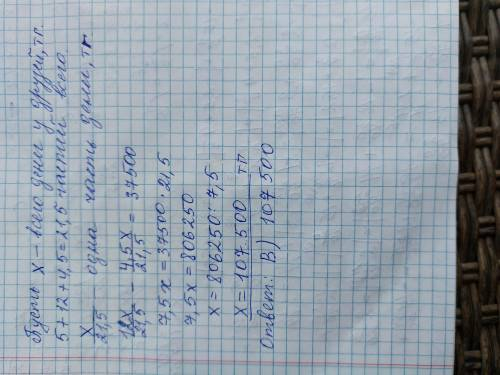 Пусть x – всего денег у друзей, тг.
5+12+4,5=21,5 частей всего
x/21,5 – одна часть денег, тг
12x/21,5 – 4,5x/21,5 = 37500
7,5x = 37500·21,5
7,5x = 806250
x = 806250:7,5
x = 107 500 тг
Ответ: B) 107 500